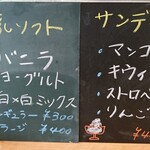 しソフト
バニラ
ヨーグルト
白×白ミックス
ギュラー ¥300
ラージ ¥400
サンデ
・マンゴ
・キウイ
・ストロベ
・りんご
¥4